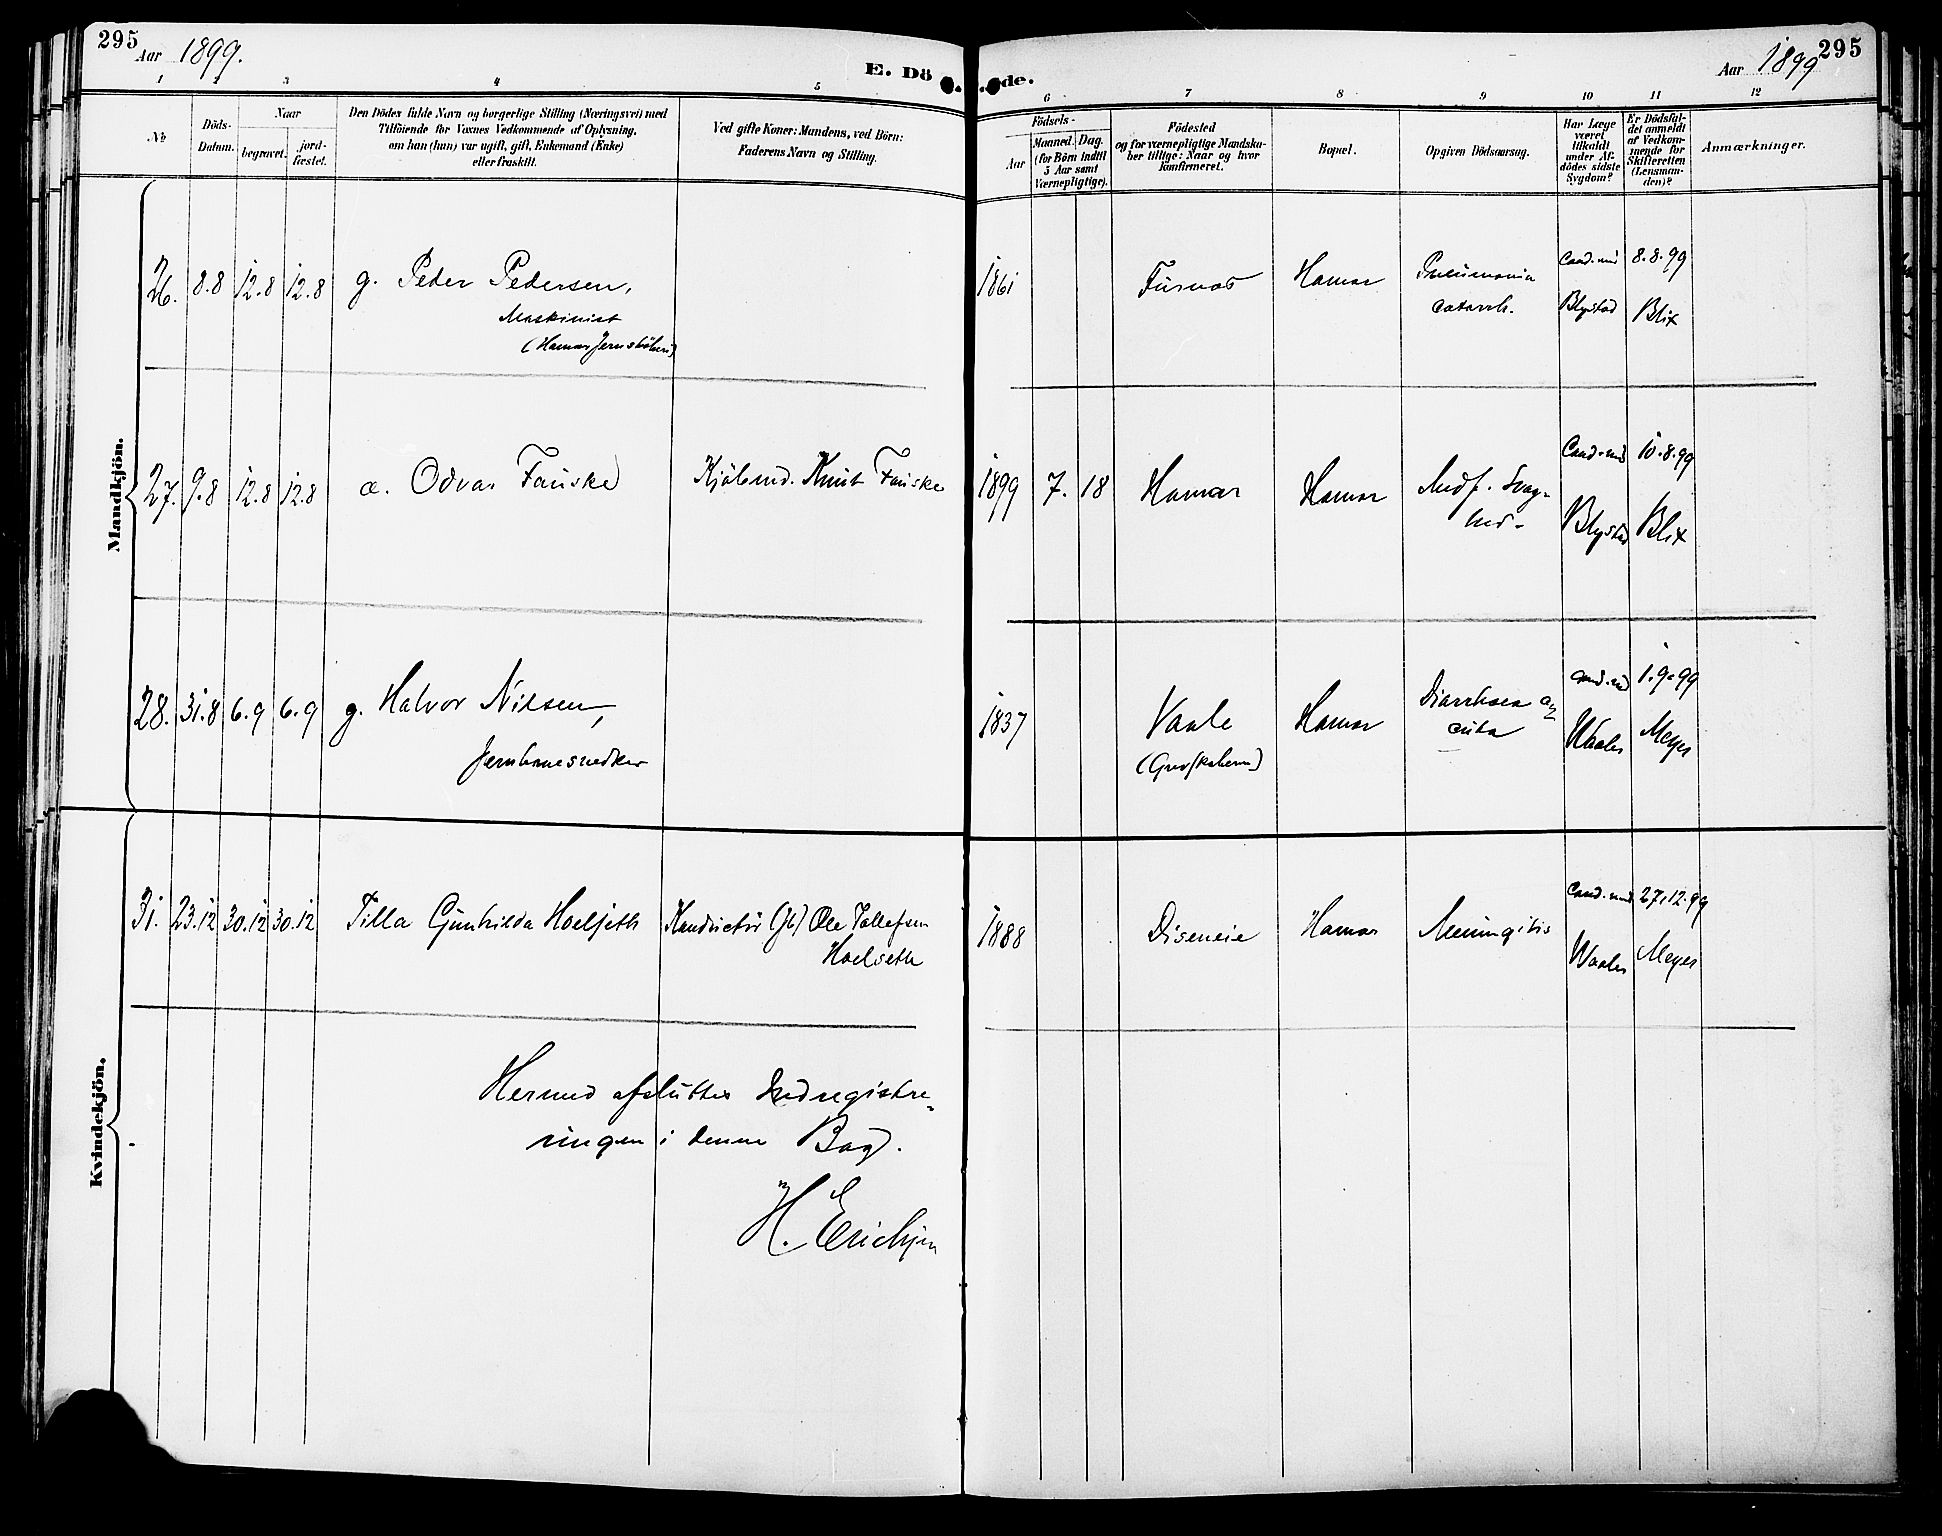 295
Aar 1899.
E. Dö
de.
Aar 1899
295
1 2 3 4 5
6 7 8 9 10 11 12
No
Döds-
Datum.
Naar
begravet.
jord-
fæstet.
Den Dödes fulde Navn og borgerlige Stilling (Næringsvei) med
Tilföiende for Voxnes Vedkommende af Oplysning,
om han (hun) var ugift, gift, Enkemand (Enke)
eller fraskilt.
Ved gifte Koner: Mandens, ved Börn:
Faderens Navn og Stilling.
Födsels-
Aar
Maaned. Dag.
(for Börn indtil
5 Aar samt
Værnepligtige).
Födested
og for værnepligtige Mandska-
ber tillige: Naar og hvor
konfirmeret.
Bopæl.
Opgiven Dödsaarsag.
Har Læge
været
tilkaldt
under Af-
dödes sidste
Sygdom?
Er Dödsfal-
det anmeldt
af Vedkom-
mende for
Skifteretten
(Lensman-
den)?
Anmærkninger.
Mandkjön.
26. 8.8 12.8 12.8 g. Peder Pedersen,
Maskinist
1861 Furnes Hamar Pneumonia
catarrh.
Cand. med
Blystad
8.8.99
Blix
27. 9.8 12.8 12.8 a. Odvar Fauske Kjöbmd. Knut Fauske
1899 7. 18 Hamar Hamar Medf. Svag-
hed.
Cand. med
Blystad
10.8.99
Blix
28. 31.8 6.9 6.9 g. Halvor Nilsen,
Jernbanesnedker
1837 Vaale
(Grevskabern)
Hamar Diarrhoea a
cuta
Cand. med
Waaler
1.9.99
Meyer
Kvindekjön.
31. 23.12 30.12 30.12 Tilla Gunhilda Hoelseth Konductör (Jb) Ole Tollefsen
Hoelseth
1888 Diseneie Hamar Meningitis
Cand. med
Waaler
27.12.99
Meyer
Hermed afsluttes Indregistre-
ringen i denne Bog.
H. Erichsen